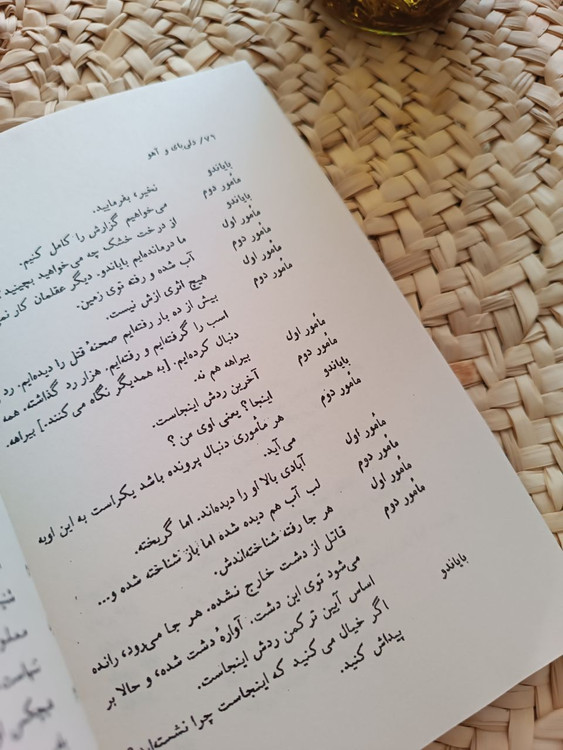 ۷۶/ ولی‌بای و آهو
بایاندو نخیر، بفرمایید.
مأمور دوم می‌خواهیم گزارش را کامل کنیم.
بایاندو از درخت خشک چه می‌خواهید بچینید
مأمور اول ما درمانده‌ایم بایاندو. دیگر عقلمان کار
مأمور دوم آب شده و رفته توی زمین.
مأمور اول هیچ اثری ازش نیست.
مأمور دوم بیش از ده بار رفته‌ایم صحنهٔ قتل را دیده‌ایم. رد
اسب را گرفته‌ایم و رفته‌ایم. هزار رد گذاشته. همه
دنبال کرده‌ایم. [به همدیگر نگاه می کنند.] بیراهه.
مأمور اول بیراهه هم نه.
مأمور دوم آخرین ردش اینجاست.
بایاندو اینجا؟ یعنی اوی من ؟
مأمور دوم هر مأموری دنبال پرونده باشد یکراست به این اوبه
می‌آید.
مأمور اول آبادی بالا او را دیده‌اند. اما گریخته.
مأمور دوم لب آب هم دیده شده اما باز شناخته شده و...
مأمور اول هر جا رفته شناخته‌اندش.
مأمور دوم قاتل از دشت خارج نشده. هر جا می‌رود، رانده
می‌شود توی این دشت. آوارهٔ دشت شده، و حالا بر
اساس آیین تر کمن ردش اینجاست.
بایاندو اگر خیال می کنید که اینجاست چرا نشسته‌اید؟
پیداش کنید.